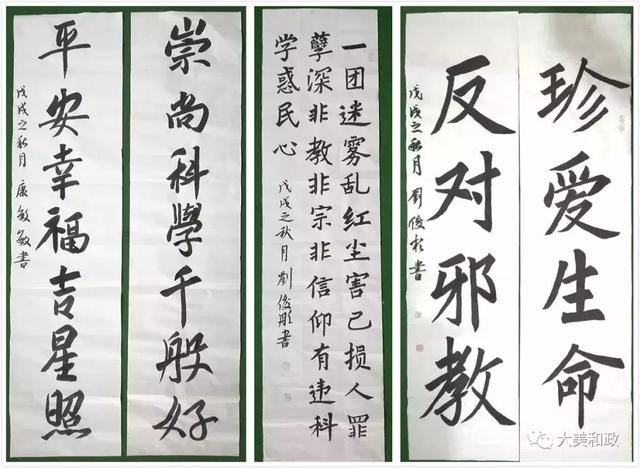 崇尚科學千般好
平安幸福吉星照
戊戌之秋月 康敏敏書
一团迷雾乱红尘害己损人罪
孽深非教非宗非信仰有违科
学惑民心
戊戌之秋月 劉俊彤書
珍爱生命
反对邪教
戊戌之秋月 劉俊書
大美和政